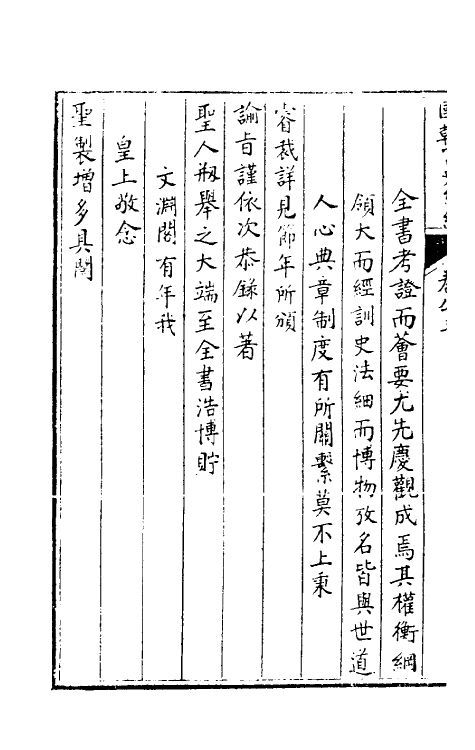 全書考證而薈要尤先慶觀成焉其權衡綱
領大而經訓史法細而博物攷名皆與世道
人心典章制度有所關繫莫不上秉
睿裁詳見節年所頒
諭旨謹依次恭錄以著
聖人刱舉之大端至全書浩博貯
文淵閣有年我
皇上敬念
聖製增多具關